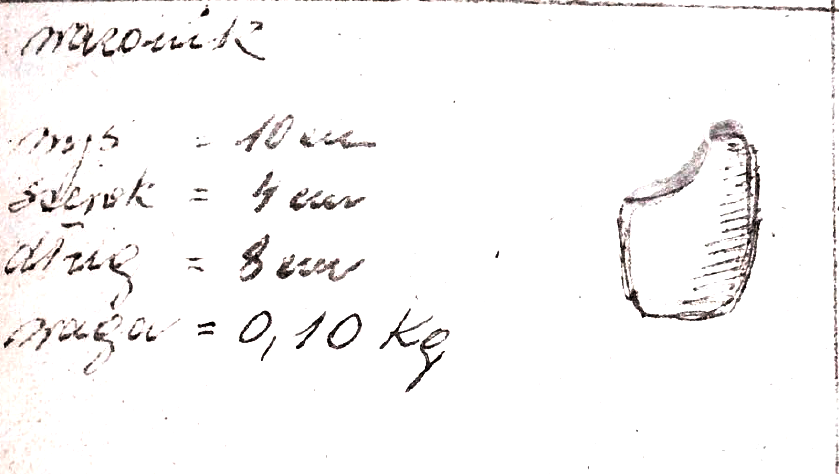 wazonik
wys = 10 cm
szerok = 4 cm
dług = 8 cm
waga = 0,10 Kg